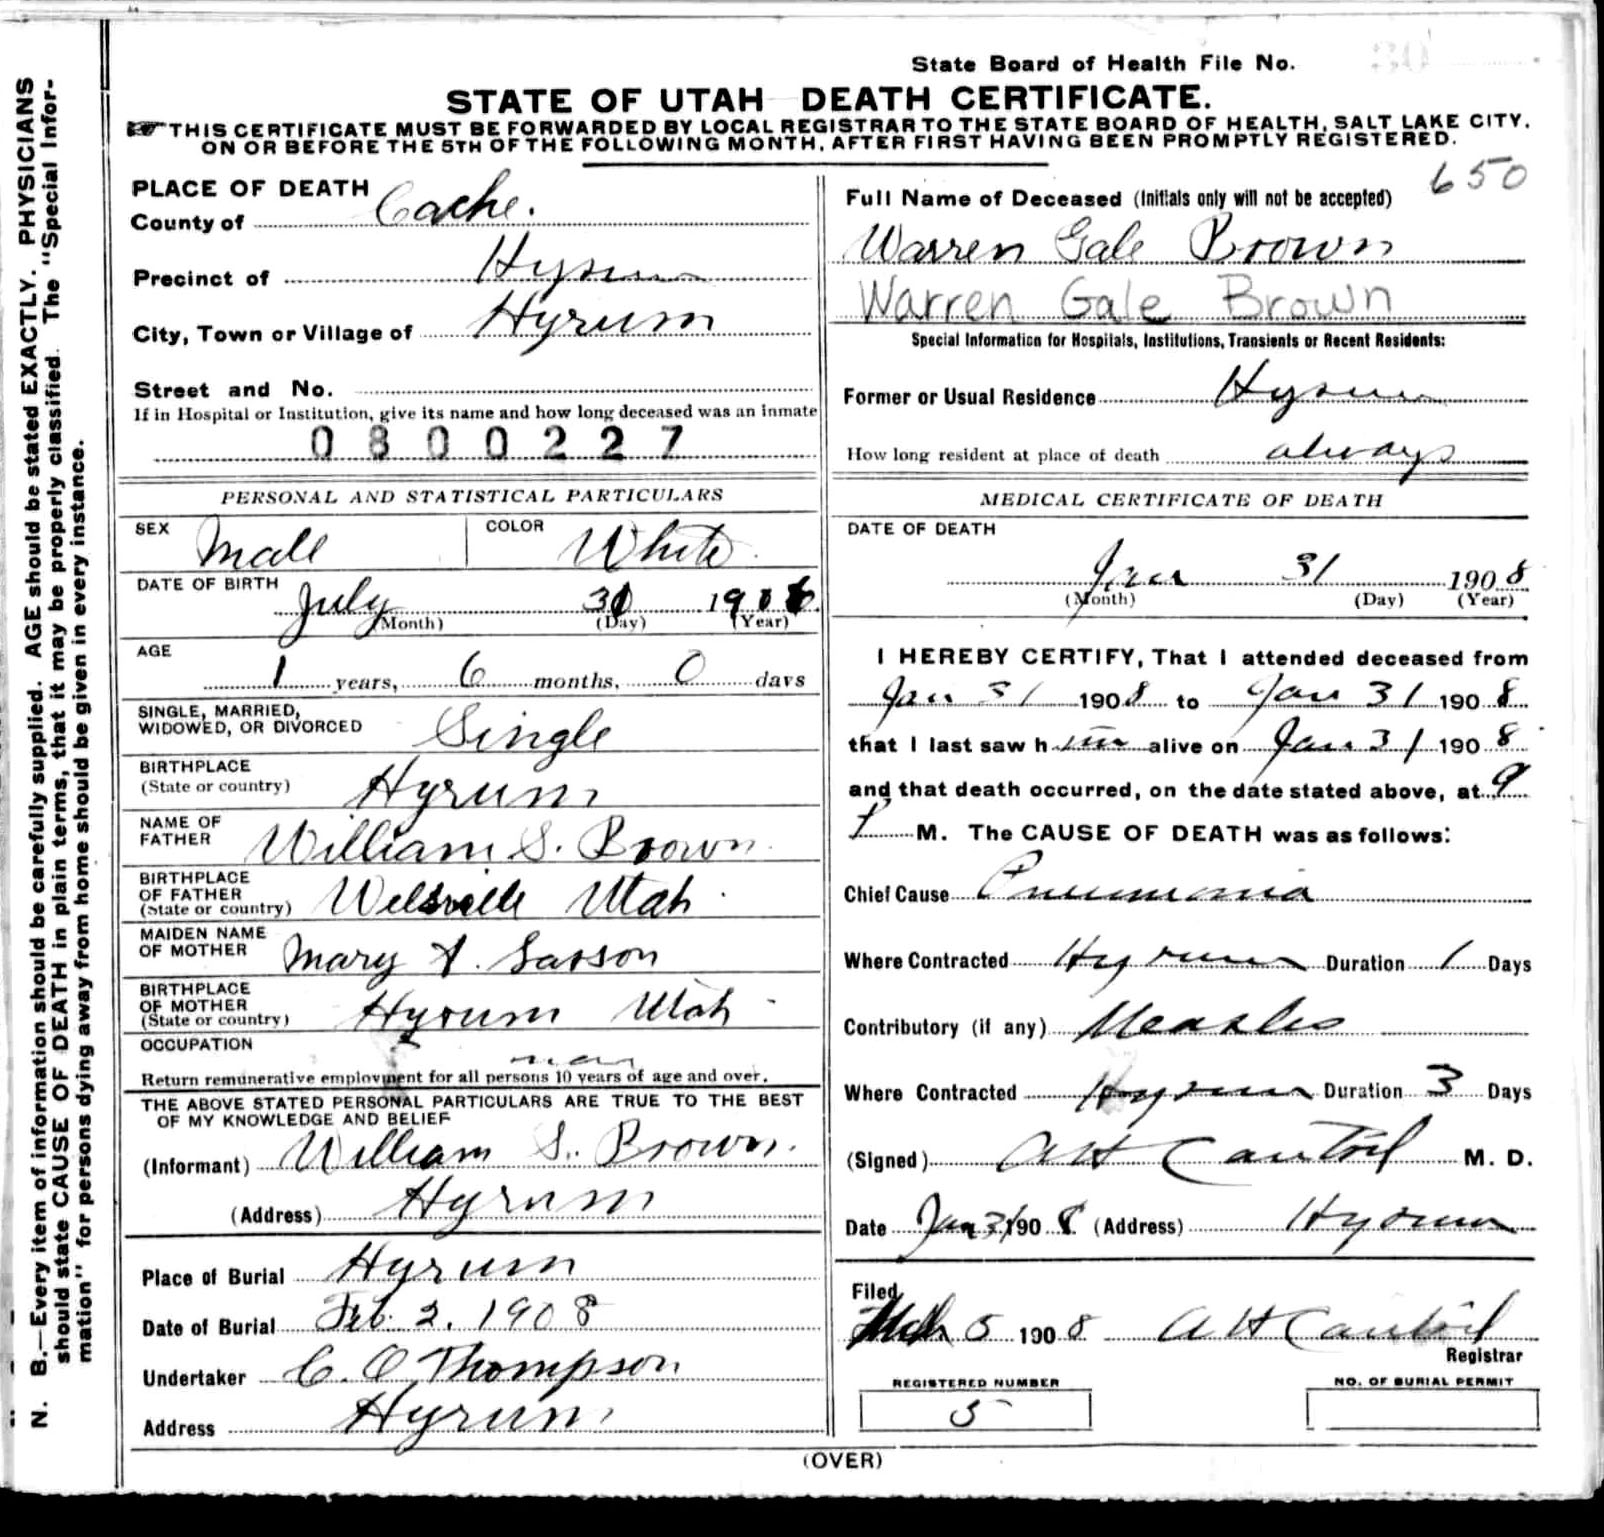 State Board of Health File No.
STATE OF UTAH DEATH CERTIFICATE.
THIS CERTIFICATE MUST BE FORWARDED BY LOCAL REGISTRAR TO THE STATE BOARD OF HEALTH, SALT LAKE CITY,
ON OR BEFORE THE 5TH OF THE FOLLOWING MONTH, AFTER FIRST HAVING BEEN PROMPTLY REGISTERED.
650
N. B.—Every item of information should be carefully supplied. AGE should be stated EXACTLY. PHYSICIANS
should state CAUSE OF DEATH in plain terms, that it may be properly classified. The "Special Infor-
mation" for persons dying away from home should be given in every instance.
PLACE OF DEATH
County of Cache.
Precinct of Hyrum
City, Town or Village of Hyrum
Street and No.
If in Hospital or Institution, give its name and how long deceased was an inmate
0800227
PERSONAL AND STATISTICAL PARTICULARS
SEX Male COLOR White
DATE OF BIRTH
July 31 1906
(Month) (Day) (Year)
AGE
1 years, 6 months, 0 days
SINGLE, MARRIED,
WIDOWED, OR DIVORCED Single
BIRTHPLACE
(State or country) Hyrum
NAME OF
FATHER William S. Brown
BIRTHPLACE
OF FATHER
(State or country) Wellsville Utah
MAIDEN NAME
OF MOTHER Mary A.
BIRTHPLACE
OF MOTHER
(State or country) Hyrum Utah
OCCUPATION
Return remunerative employment for all persons 10 years of age and over.
THE ABOVE STATED PERSONAL PARTICULARS ARE TRUE TO THE BEST
OF MY KNOWLEDGE AND BELIEF
(Informant) William S. Brown.
(Address) Hyrum
Place of Burial Hyrum
Date of Burial Feb. 2, 1908
Undertaker C. O Thompson
Address Hyrum
Full Name of Deceased (Initials only will not be accepted)
Warren Gale Brown
Warren Gale Brown
Special Information for Hospitals, Institutions, Transients or Recent Residents:
Former or Usual Residence Hyrum
How long resident at place of death always
MEDICAL CERTIFICATE OF DEATH
DATE OF DEATH
Jan 31 1908
(Month) (Day) (Year)
I HEREBY CERTIFY, That I attended deceased from
Jan 31 1908 to Jan 31 1908
that I last saw him alive on Jan 31 1908
and that death occurred, on the date stated above, at 9
P M. The CAUSE OF DEATH was as follows:
Chief Cause Pneumonia
Where Contracted Hyrum Duration 1 Days
Contributory (if any) Measles
Where Contracted Hyrum Duration 3 Days
(Signed) A H Cantril M. D.
Date Jan 31 1908 (Address) Hyrum
Filed
Mch 5 1908 A H Cantril
Registrar
REGISTERED NUMBER
5
NO. OF BURIAL PERMIT
(OVER)